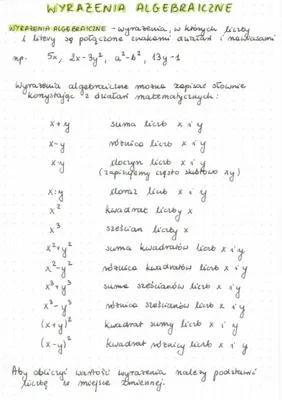 WYRAŻENIA ALGEBRAICZNE
WYRAŻENIA ALGEBRAICZNE - wyrażenia, w których liczby
i litery są połączone znakami działań i nawiasami
np. 5x, 2x-3y², a²-b², 13y-1
Wyrażenia algebraiczne można zapisać słownie
korzystając z działań matematycznych:
x+y suma liczb x i y
x-y różnica liczb x i y
x·y iloczyn liczb x i y
(zapisujemy często skrótowo xy)
x:y iloraz liczb x i y
x² kwadrat liczby x
x³ sześcian liczby x
x²+y² suma kwadratów liczb x i y
x²-y² różnica kwadratów liczb x i y
x³+y³ suma sześcianów liczb x i y
x³-y³ różnica sześcianów liczb x i y
(x+y)² kwadrat sumy liczb x i y
(x-y)² kwadrat różnicy liczb x i y
Aby obliczyć wartość wyrażenia należy podstawić
liczbę w miejsce zmiennej.